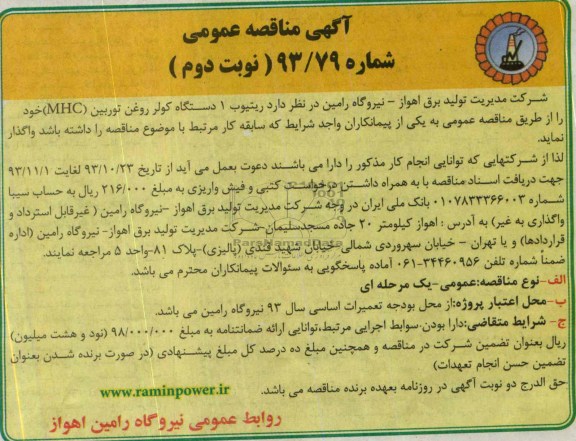 آگهی مناقصه عمومی
شماره ۹۳/۷۹ ( نوبت دوم )
شرکت مدیریت تولید برق اهواز – نیروگاه رامین در نظر دارد ریتیوب ۱ دستگاه کولر روغن توربین (MHC)خود
را از طریق مناقصه عمومی به یکی از پیمانکاران واجد شرایط که سابقه کار مرتبط با موضوع مناقصه را داشته باشد واگذار
نماید.
لذا از شرکتهایی که توانایی انجام کار مذکور را دارا می باشند دعوت بعمل می آید از تاریخ ۹۳/۱۰/۲۳ لغایت ۹۳/۱۱/۱
جهت دریافت اسناد مناقصه با به همراه داشتن درخواست کتبی و فیش واریزی به مبلغ ۲۱۶/۰۰۰ ریال به حساب سیبا
شماره ۰۱۰۷۸۳۳۳۶۶۰۰۳ بانک ملی ایران در وجه شرکت مدیریت تولید برق اهواز –نیروگاه رامین ( غیرقابل استرداد و
واگذاری به غیر) به آدرس : اهواز کیلومتر ۲۰ جاده مسجدسلیمان–شرکت مدیریت تولید برق اهواز– نیروگاه رامین (اداره
قراردادها) و یا تهران – خیابان سهروردی شمالی –خیابان شهید قندی (پالیزی)–پلاک ۸۱–واحد ۵ مراجعه نمایند.
ضمناً شماره تلفن ۳۴۴۶۰۹۵۶–۰۶۱ آماده پاسخگویی به سئوالات پیمانکاران محترم می باشد.
الف–نوع مناقصه:عمومی–یک مرحله ای
ب–محل اعتبار پروژه:از محل بودجه تعمیرات اساسی سال ۹۳ نیروگاه رامین می باشد.
ج– شرایط متقاضی:دارا بودن–سوابط اجرایی مرتبط،توانایی ارائه ضمانتنامه به مبلغ ۹۸/۰۰۰/۰۰۰ (نود و هشت میلیون)
ریال بعنوان تضمین شرکت در مناقصه و همچنین مبلغ ده درصد کل مبلغ پیشنهادی (در صورت برنده شدن بعنوان
تضمین حسن انجام تعهدات)
حق الدرج دو نوبت آگهی در روزنامه بعهده برنده مناقصه می باشد.
www.raminpower.ir
روابط عمومی نیروگاه رامین اهواز